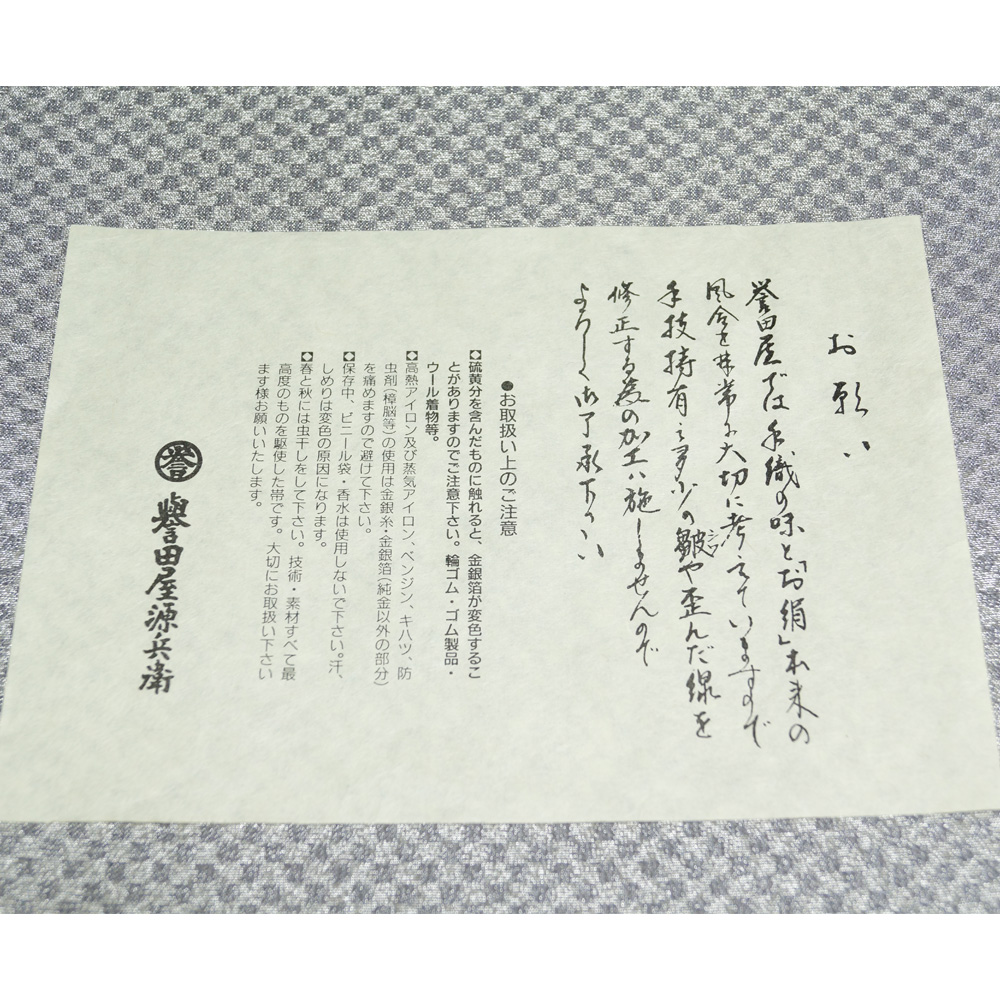 お願い
誉田屋では手織の味と「お絹」本来の
風合を非常に大切に考えていますので
手技持有之多少の皺や歪んだ線を
シワ
修正する為の加工は施しませんので
よろしく御了承下さい
●お取扱い上のご注意
◆硫黄分を含んだものに触れると、金銀箔が変色するこ
とがありますのでご注意下さい。輪ゴム・ゴム製品・
ウール着物等。
◆高熱アイロン及び蒸気アイロン、ベンジン、キハツ、防
虫剤(樟脳等)の使用は金銀糸・金銀箔(純金以外の部分)
を痛めますので避けて下さい。
◆保存中、ビニール袋・香水は使用しないで下さい。汗、
しめりは変色の原因になります。
◆春と秋には虫干しをして下さい。技術・素材すべて最
高度のものを駆使した帯です。大切にお取扱い下さい
ます様お願いいたします。
誉 誉田屋源兵衛